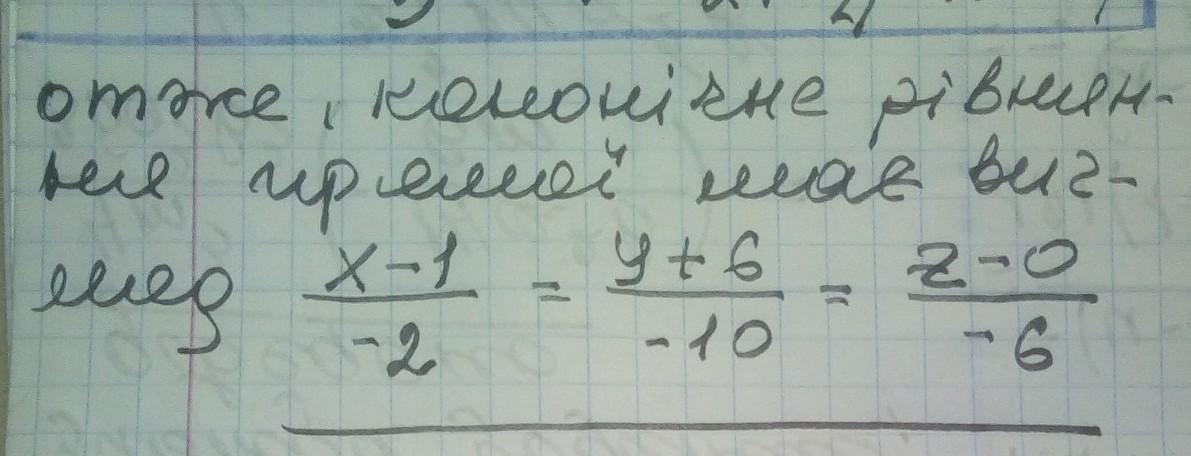 отже, канонічне рівнян-
ня прямої має виг-
ляд x-1/-2 = y+6/-10 = z-0/-6